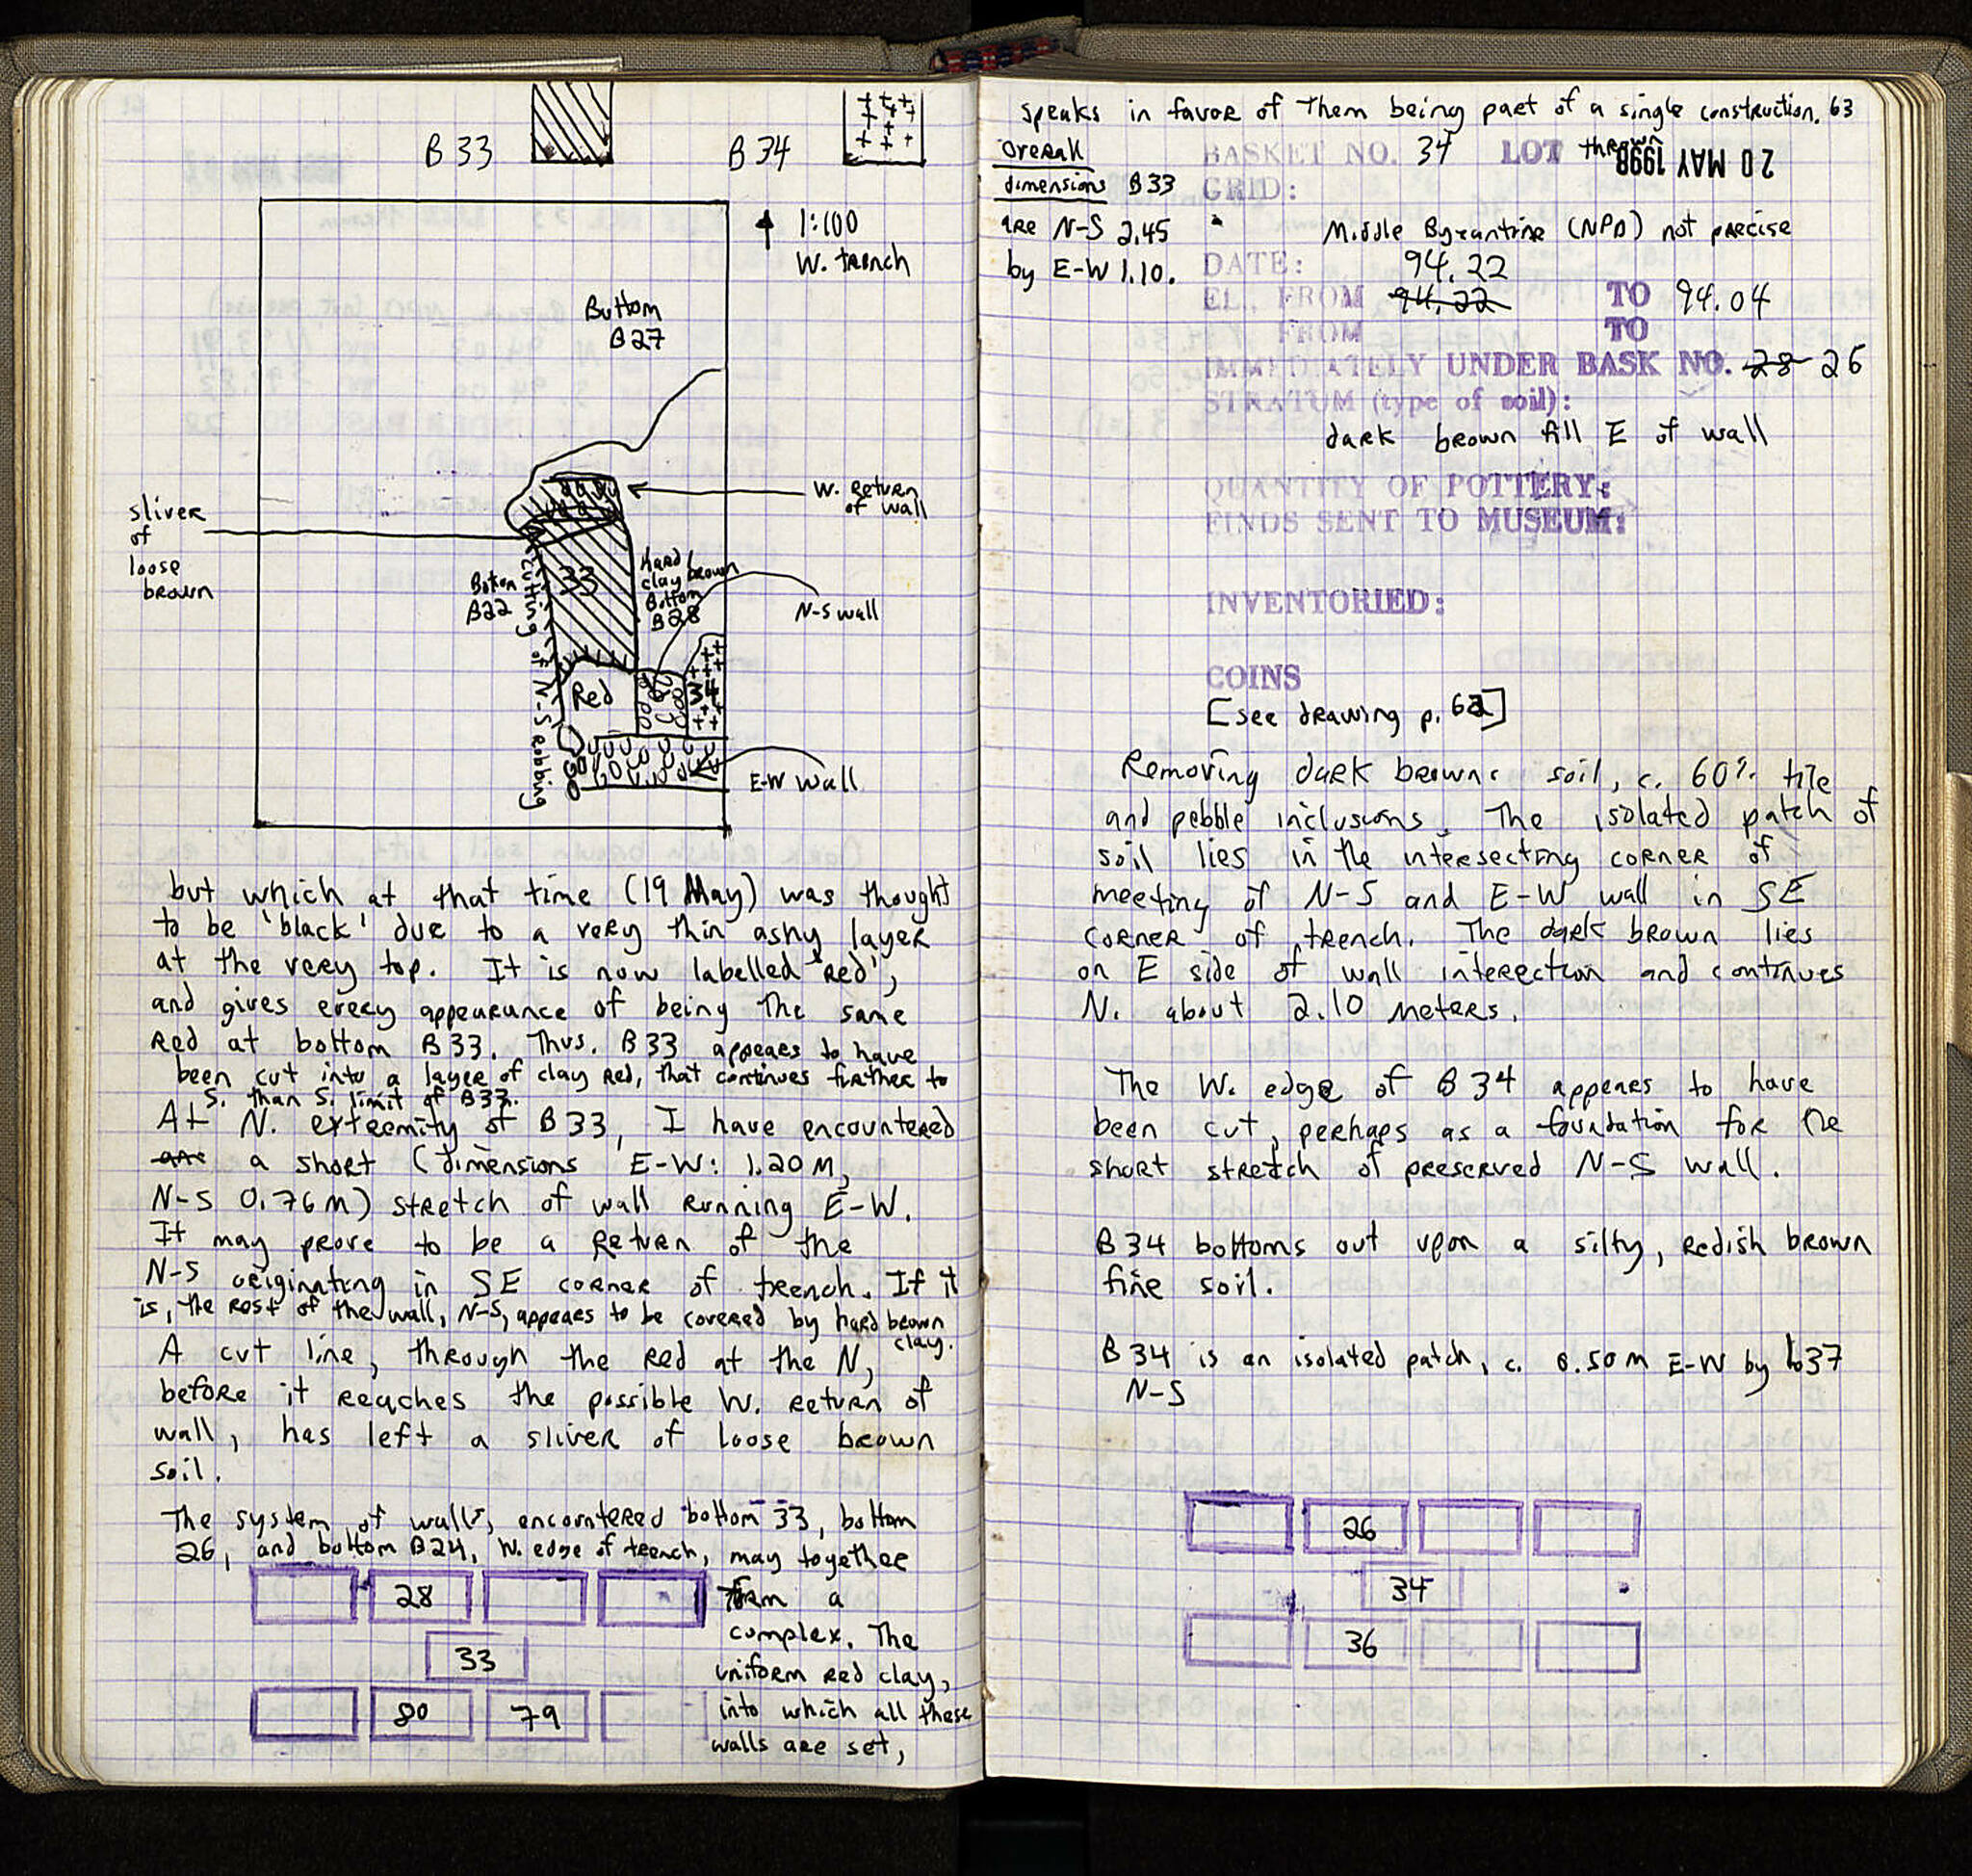 B33
B34
1:100
W. trench
Bottom
B27
sliver
of
loose
brown
W. Return
of wall
33
Botom
B22
Hard
clay brown
Bottom
B28
N-S wall
cutting of N-S robbing
Red
34
E-W wall
but which at that time (19 May) was thought
to be 'black' due to a very thin ashy layer
at the very top. It is now labelled 'red',
and gives every appearance of being the same
Red at bottom B33. Thus. B33 appears to have
been cut into a layer of clay red, that continues further to
S. than S. limit of B33.
At N. extremity of B33, I have encountered
a short (dimensions E-W: 1.20 M,
N-S 0.76 M) stretch of wall running E-W.
It may prove to be a Return of the
N-S originating in SE corner of trench. If it
is, the rest of the wall, N-S, appears to be covered by hard brown
clay.
A cut line, through the red at the N,
before it reaches the possible W. return of
wall, has left a sliver of loose brown
soil.
The system of walls, encountered bottom 33, bottom
26, and bottom B24, W. edge of trench, may together
form a
complex. The
uniform red clay,
into which all these
walls are set,
28
33
80 79
speaks in favor of them being part of a single construction. 63
Overall
dimensions B33
are N-S 2.45
by E-W 1.10.
BASKET NO. 34 LOT
20 MAY 1998
GRID:
Middle Byzantine (NPD) not precise
DATE:
94.22
EL., FROM 94.22 TO 94.04
FROM TO
IMMEDIATELY UNDER BASK NO. 28 26
STRATUM (type of soil):
dark brown fill E of wall
QUANTITY OF POTTERY:
FINDS SENT TO MUSEUM:
INVENTORIED:
COINS
[see drawing p. 62]
Removing dark brown soil, c. 60% tile
and pebble inclusions. The isolated patch of
soil lies in the intersecting corner of
meeting of N-S and E-W wall in SE
corner of trench. The dark brown lies
on E side of wall interection and continues
N. about 2.10 meters.
The W. edge of B34 appears to have
been cut, perhaps as a foundation for the
short stretch of preserved N-S wall.
B34 bottoms out upon a silty, redish brown
fine soil.
B34 is an isolated patch, c. 0.50 m E-W by 1.37
N-S
26
34
36